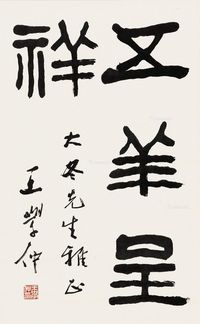 五羊呈
祥
大冬先生雅正
王學仲